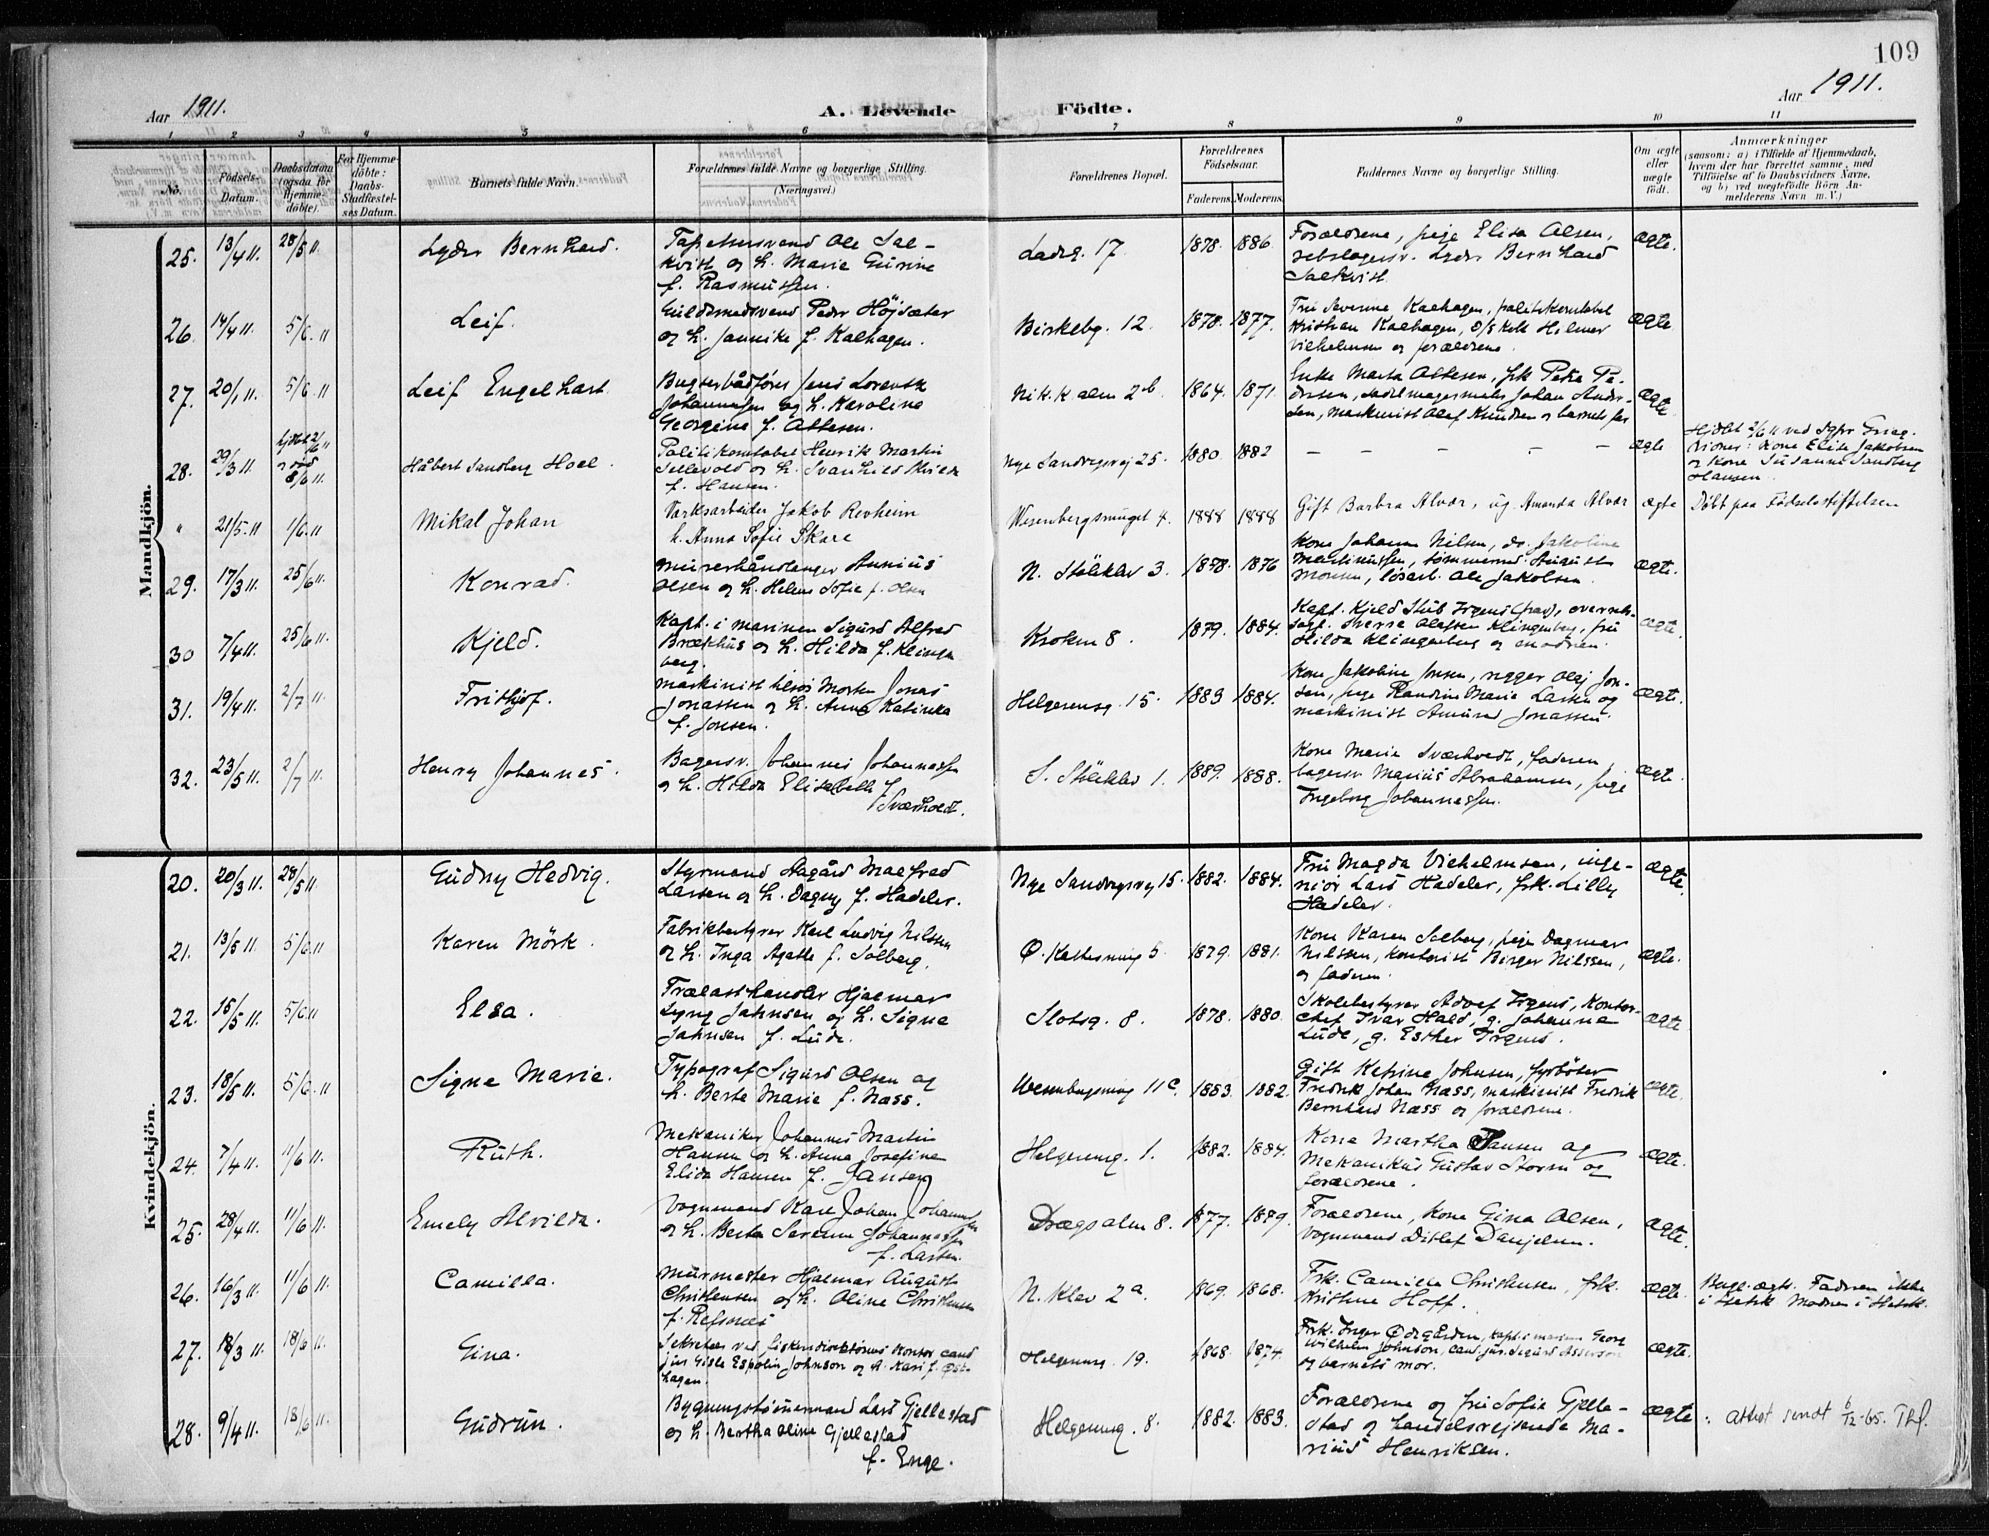 109
Aar 1911.
A. Levende Födte.
Aar 1911.
1 2 3 4 5 6 7 8 9 10 11
No.
Födsels-
Datum.
Daabsdatum
(ogsaa for
Hjemme-
döbte).
For Hjemme-
döbte:
Daabs-
Stadfæstel-
ses Datum.
Barnets fulde Navn.
Forældrenes fulde Navne og borgerlige Stilling.
(Næringsvei.)
Forældrenes Bopæl.
Forældrenes
Födselsaar.
Faderens. Moderens.
Faddernes Navne og borgerlige Stilling.
Om ægte
eller
uægte
födt.
Anmærkninger
(saasom: a) i Tilfælde af Hjemmedaab,
hvem der har forrettet samme, med
Tilföielse af to Daabsvidners Navne,
og b) ved uægtefödte Börn An-
melderens Navn m. V.)
Mandkjön.
25. 13/4 11. 28/5 11 Lyder Bernhard. Ladeg. 17. 1878. 1886. ægte.
kvist og h. Marie Gurine
f. Rasmussen.
Forældrene, pige Elisa Olsen,
26. 14/4 11. 5/6. 11 Leif. Birkebg. 12. 1878. 1877. ægte
Guldsmedsvend Peder Højsæter
og h. Jannike f. Kalhagen.
Fru Severine Kalhagen, politikonstabel
Kristian Kalhagen,
Vilhelmsen og forældrene.
27. 20/1 11. 5/6 11 Leif Engelhart Nik.k.alm 2b 1864. 1871. ægte.
Bugserbådfører Jens Lorentz
Johannesen og h. Karoline
Georgine f. Attesen.
Enke Marta Attesen, frk Petra Pe-
dersen, sadelmagermester Johan Ander-
sen, maskinist Olaf Knudsen og barnets far
28. 29/3 11. 8/6 11. Håbert Sandberg Hoel. Nye Sandvigsvej 25. 1880 1882 – – – – – ægte
Politikonstabel Henrik Martin
f. Hansen.
Kone Elise Jakobsen
og Kone Susanne Sandberg
Hansen.
" 21/5. 11 1/6. 11 Mikal Johan Wesenbergsmuget 4. 1888 1888 ægte
Verksarbeider Jakob Revheim
h. Anna Sofie Skare
Gift Barbra Alvær, ug. Amanda Alvær
Döbt paa Fødselsstiftelsen
29. 17/3 11. 25/6 11. Konrad. N. Stölklev 3. 1878. 1876 ægte.
Murerhåndlanger Annius
Olsen og h. Helene Sofie f. Olsen
Kone Johanne Nilsen,
Monsen, løsarb. Ole Jakobsen.
30 7/4 11. 25/6 11. Kjeld. Kroken 8. 1879. 1884. ægte.
Kapt. i marinen Sigurd Alfred
Brækhus og h. Hilda f. Klingen
berg.
Kapt. Kjeld Stub Irgens
Hilda Klingenberg og moderen.
31. 19/4 11. 2/7 11 Frithjof. Helgesensg. 15. 1883 1884. ægte.
Jonassen og h. Anna Katinka
f. Jonsen.
Kone Jakobine Jonsen, rigger Olaj Jon-
sen, pige Randine Marie Larsen og
maskinist Amund Jonassen.
32. 23/5 11. 2/7 11. Henry Johannes. S. Stölklev 1. 1889. 1888. ægte.
Bagersv. Johannes Johannessen
og h. Hilda Elisabeth f.
Sværholdt.
Kone Marie Sværholdt, faderen,
bagersv Marius Abrahamsen, pige
Ingeborg Johannessen.
Kvindekjön.
20. 20/3 11. 28/5 11 Gudny Hedvig. Nye Sandvigsvej 15. 1882. 1884. ægte.
Styrmand Aagård Malfred
Larsen og h. Dagny f. Hadeler.
Fru Magda Vilhelmsen, inge-
niør Lars Hadeler, frk. Lilly
Hadeler.
21. 13/5 11. 5/6. 11 Karen Mörk. 1879. 1881. ægte.
Fabrikbestyrer Karl Ludvig Nilssen
og h. Inga Agathe f. Solberg.
Kone Karen Solberg, pige Dagmar
Nilssen, kontorist Birger Nilssen,
og faderen.
22. 15/5 11. 5/6 11 Elsa. Slotsg. 8. 1878. 1880. ægte
Trælasthandler Hjalmar
Lyng Jahnsen og h. Signe
Jahnsen f. Lude.
Skolebestyrer Adolf Irgens, Kontor-
chef Ivar Hald, g. Johanna
Lude, g. Esther Irgens.
23. 18/5 11. 5/6. 11 Signe Marie. 11c. 1883. 1882. ægte.
Typograf Sigurd Olsen og
h. Berte Marie f. Næss.
Gift Katrine Johnsen, fyrbøter
Fredrik Johan Næss, maskinist Fredrik
Bernhard Næss og forældrene.
24. 7/4 11. 11/6 11. Ruth. Helgesensg. 1. 1882. 1884. ægte.
Mekaniker Johannes Martin
Hansen og h. Anna Josefine
Elida Hansen f. Jansen
Kone Martha Jansen og
Mekanikus Gustav Storm og
forældrene.
25. 28/4 11. 11/6 11. Emely Alvilda. Dragsalm 8. 1877. 1879. ægte.
Vognmand Karl Johan Johannessen
og h. Berta Severine Johannessen
f. Larsen.
Forældrene, kone Gina Olsen,
vognmand Ditlef Danjelsen.
26. 16/3 11. 11/6 11. Camilla. N. Klev 2a. 1869. 1868. ægte.
Murmester Hjalmar August
Christensen og h. Oline Christensen
f. Refsnes
Frk. Camilla Christensen, frk.
Kristine Hoff.
Faderen ikke
i Statsk. Moderen i Statsk.
27. 18/3 11. 18/6 11. Gina. Helgesensg. 19. 1868. 1874. ægte.
Sekretær ved fiskeridirektørens kontor cand
jur. Gisle Espolin Johnson og h. Kari f. Øde-
hagen.
Frk. Inger Ødegården, kapt. i marinen Georg
Wilhelm Johnson, cand. jur. Sigurd Asserson
og barnets mor.
28. 9/4 11. 18/6 11. Gudrun. Helgesensg. 8. 1882. 1883. ægte
Bygningstømmermand Lars Gjellestad
og h. Bertha Oline Gjellestad
f. Enge.
Forældrene og fru Sofie Gjelle-
stad og handelsrejsende Ma-
rius Henriksen.
Attest sendt 6/12-65.